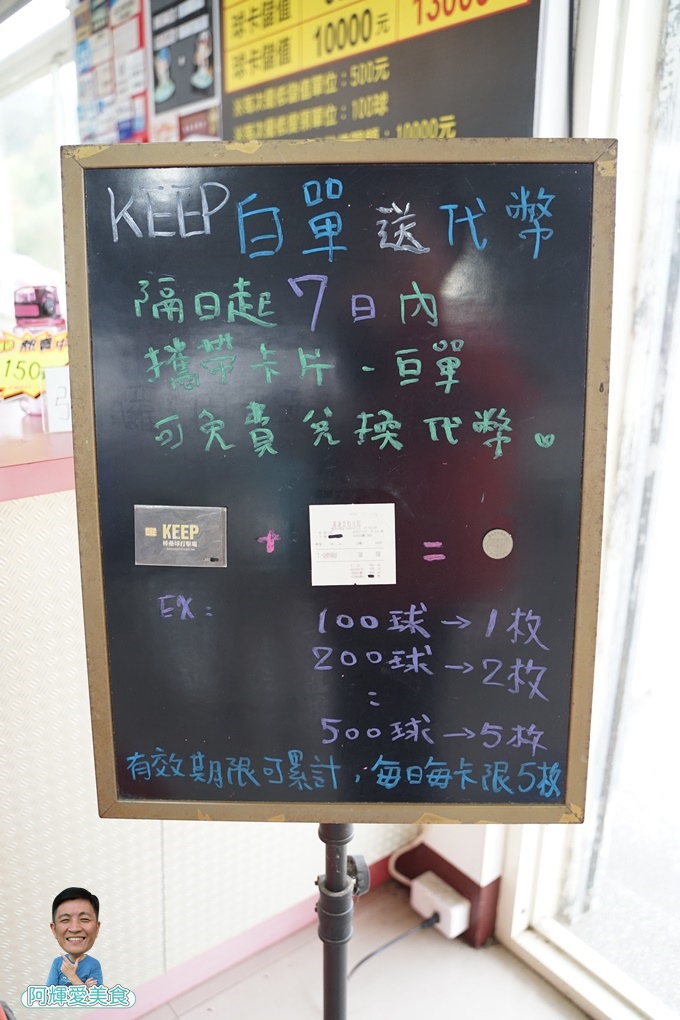 球卡儲值
球卡儲值 10000元 13000
※每次開卡儲值單位：500元
KEEP 白單 送 代幣
隔日起 7日內
攜帶卡片、白單
可免費兌換代幣
KEEP
棒壘球打擊場
+ =
EX：
100球→1枚
200球→2枚
：
500球→5枚
有效期限可累計，每日每卡限5枚
150
阿輝愛美食